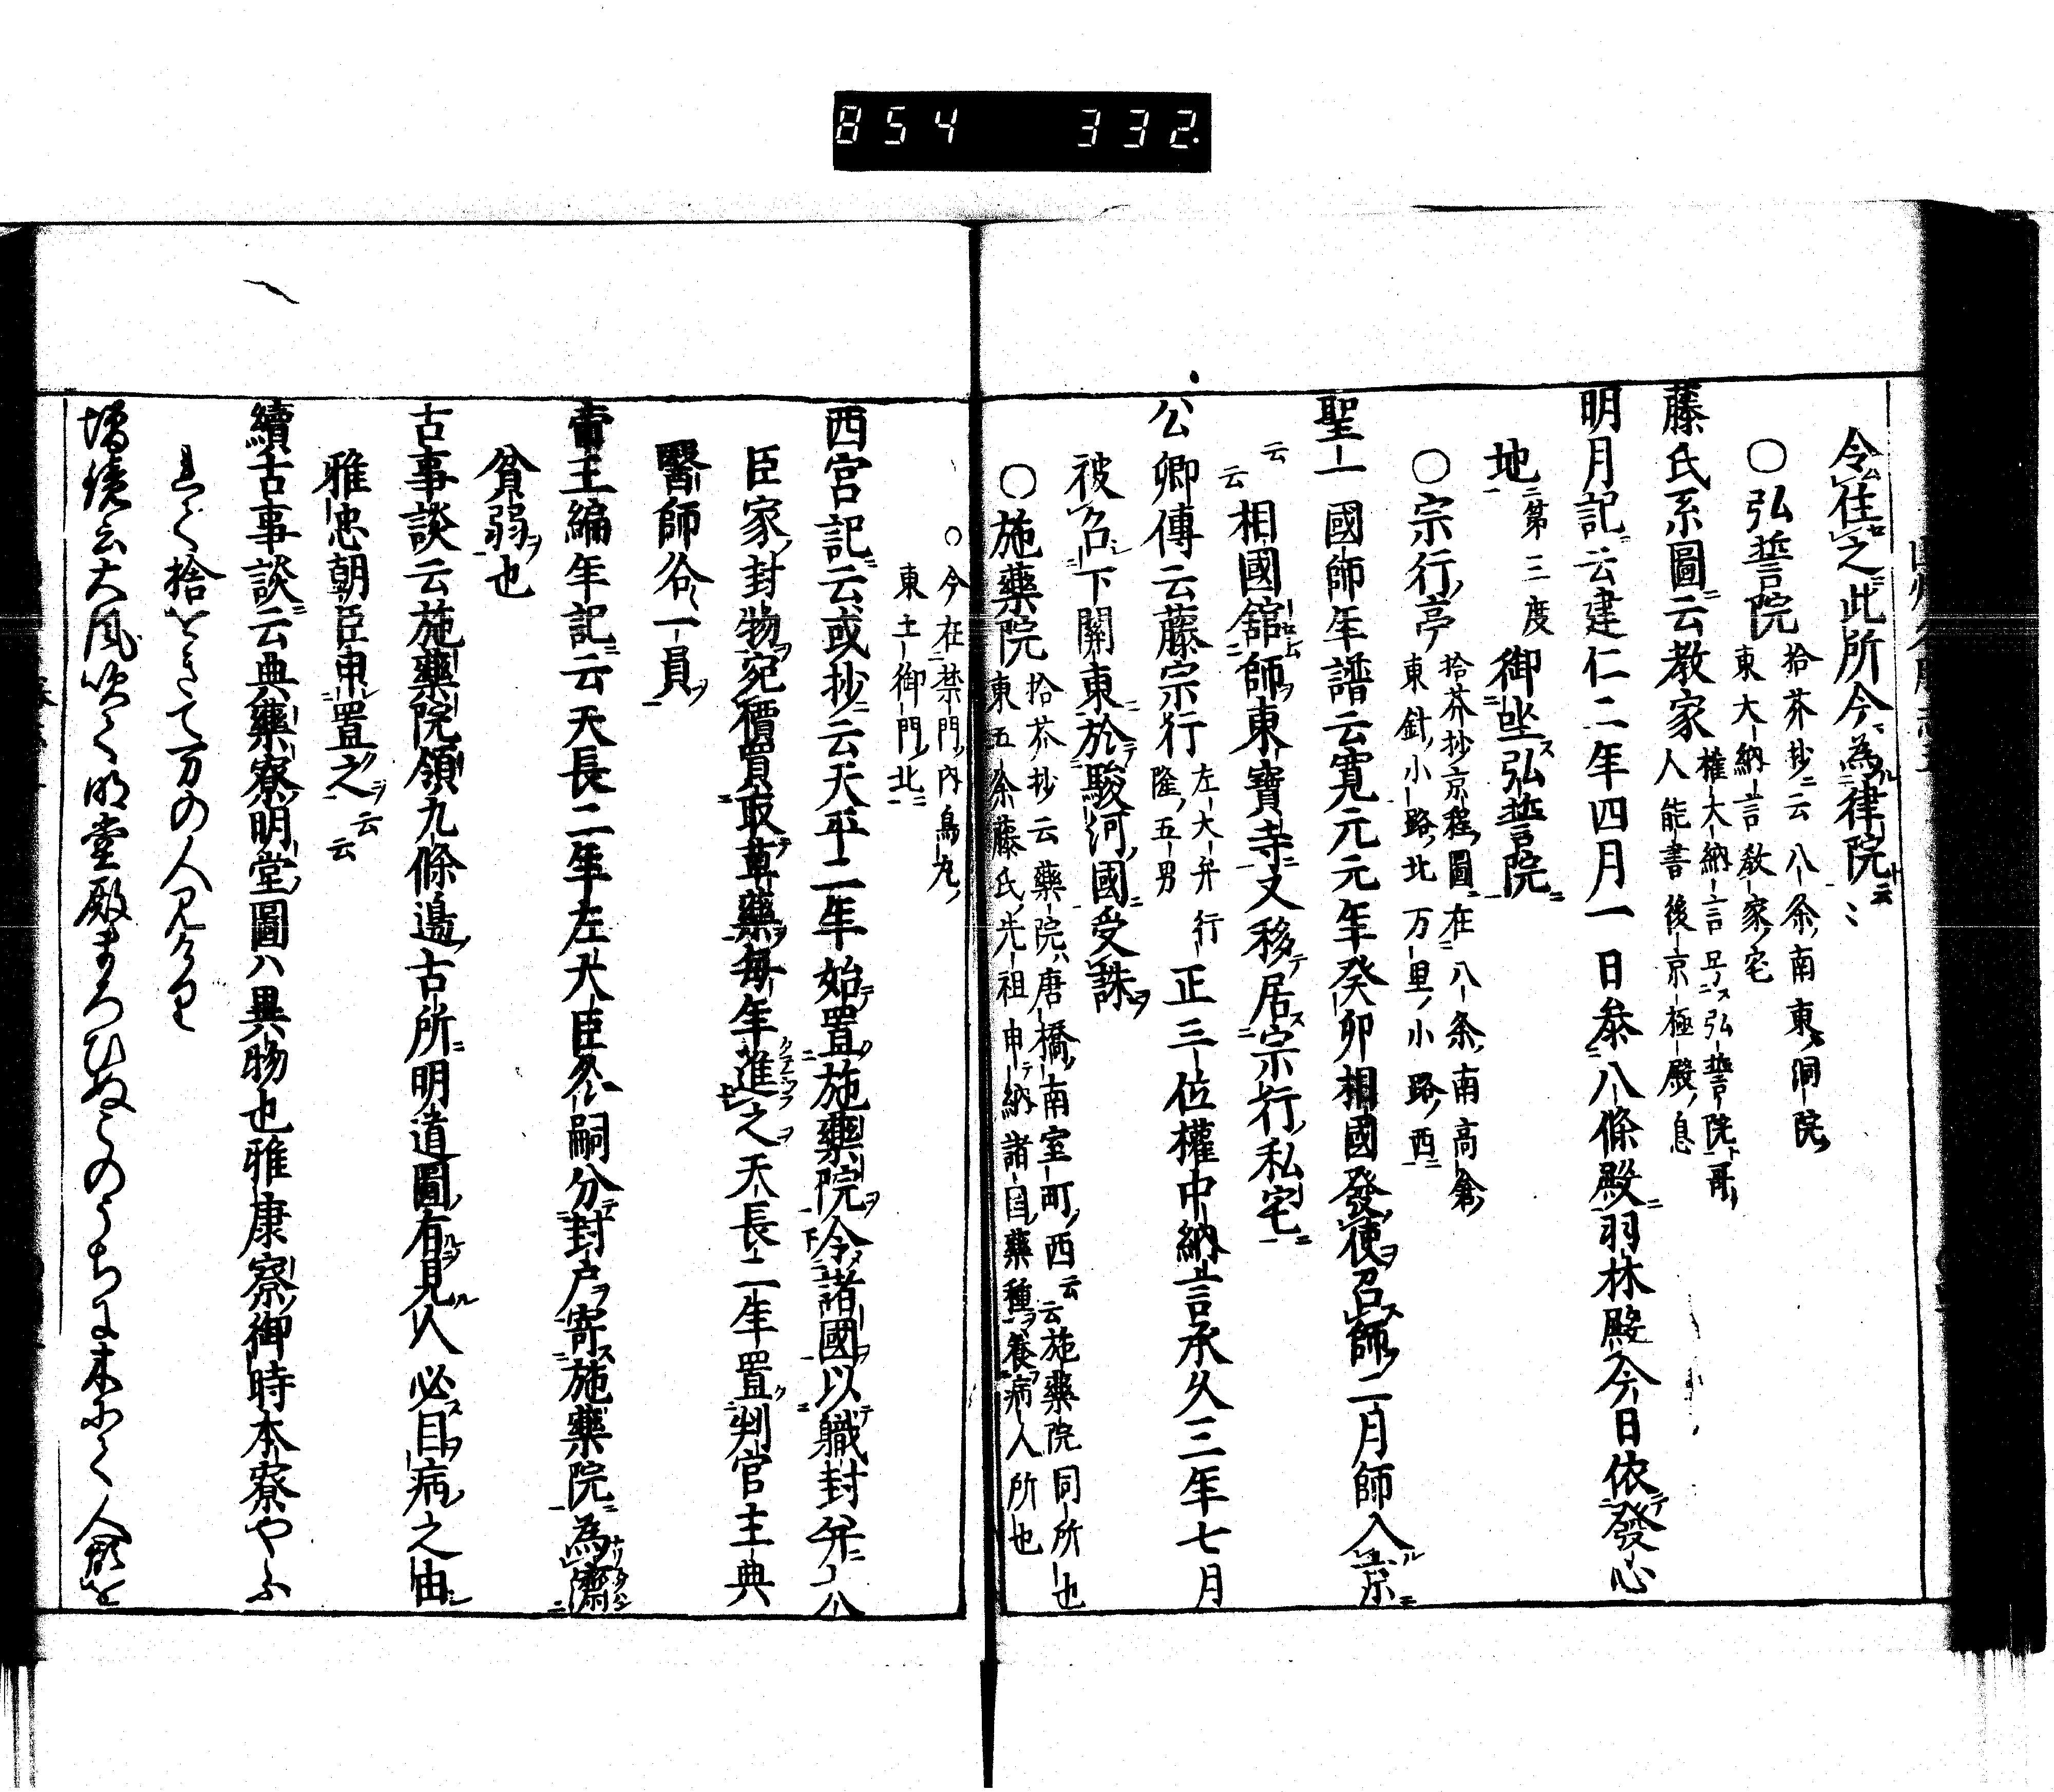 854 332.
令住之此所今為律院云〻
○弘誓院 拾芥抄云八条南東洞院
東大納言教家宅
藤氏系圖云教家 權大納言号弘誓院哥
人能書後京極殿息
明月記云建仁二年四月一日参八條殿羽林殿今日依發心
地 第三度 御坐弘誓院
○宗行亭 拾芥抄京程圖在八条南高倉
東針小路北万里小路西
聖一國師年譜云寛元元年癸卯相國發使召師二月師入京
云云
相國舘師東寶寺文移居宗行私宅
公卿傳云藤宗行 左大弁行
隆五男 正三位權中納言承久三年七月
被召下關東於駿河國受誅
○施藥院 拾芥抄云藥院唐橋南室町西云云施藥院同所也
東五条藤氏先祖申納諸国藥種養病人所也
○今在禁門内烏丸
東土御門北
西宮記云或抄云天平二年始置施藥院令諸國以職封并公
臣家封物宛價買取草藥毎年進之天長二年置判官主典
醫師各一員
帝王編年記云天長二年左大臣冬嗣分封戸寄施藥院為濟
貧弱也
古事談云施藥院領九條邊古所明道圖有見人必目病之由
雅忠朝臣申置之云云
續古事談云典藥寮明堂圖ハ異物也雅康寮御時本寮やふ
捨をきて万の人見けり
増鏡云大風吹て明堂殿まろひぬこのうちに木にて人形を